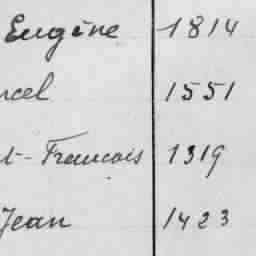 Eugène 1814
rcel 1551
t-Francois 1319
Jean 1423